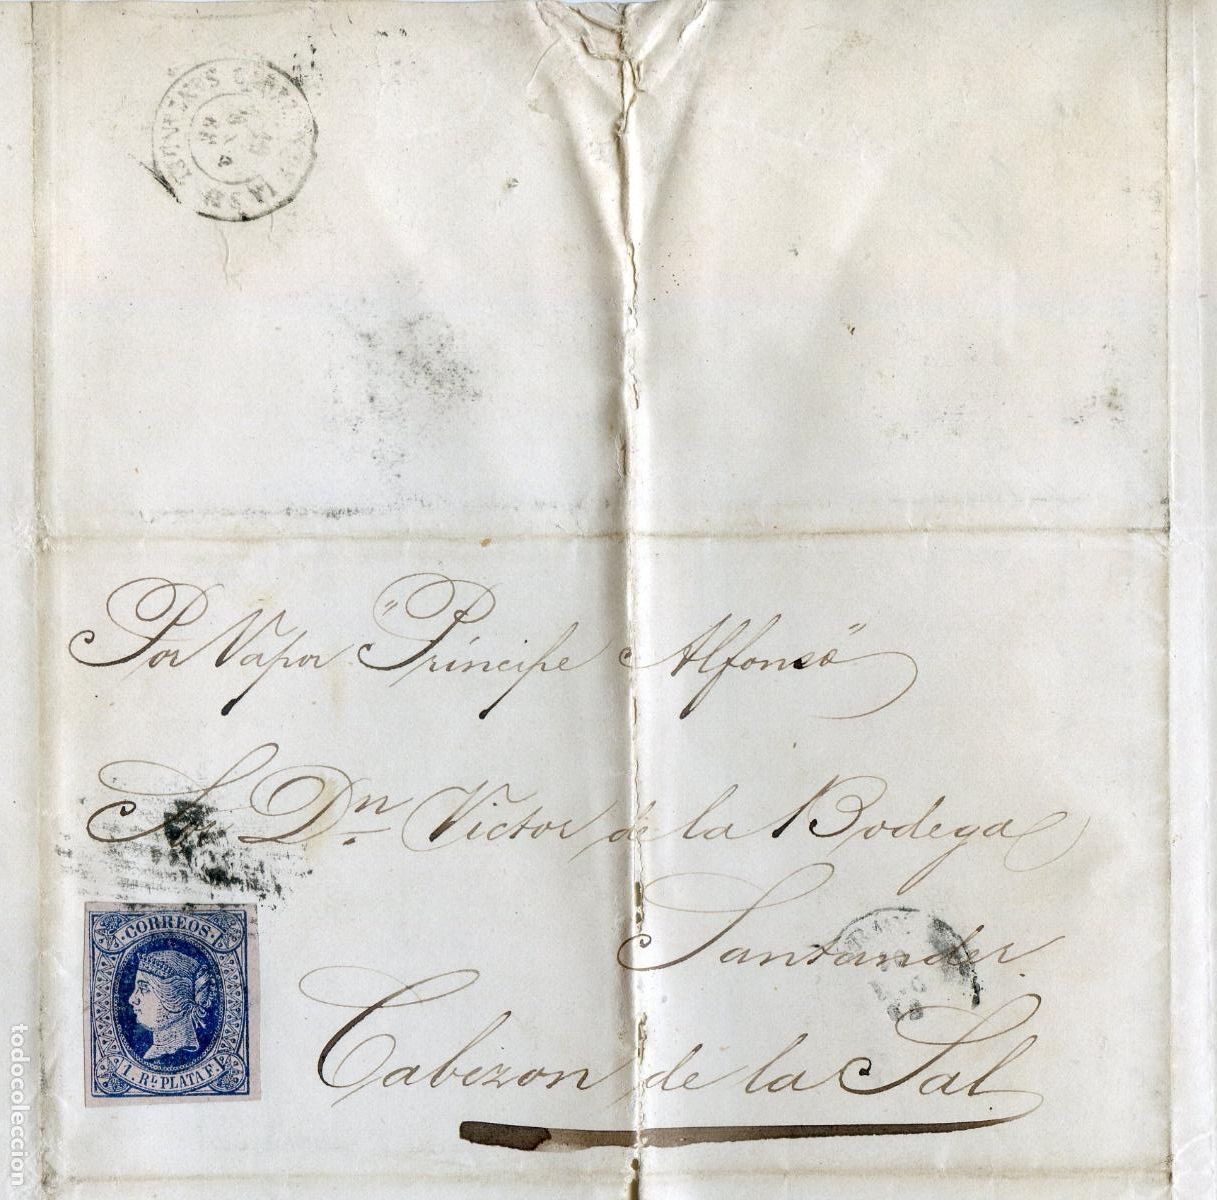 Por Vapor "Príncipe Alfonso"
Sr. Dn. Victor de la Bodega
Santander
Cabezon de la Sal
CORREOS
1. Rl PLATA F.
todocoleccion